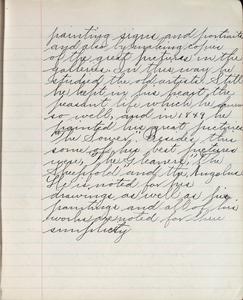 painting signs and portraits
and also by making copies
of the great pictures in the
galleries. In this way he
studied the old artists. Still
he kept in his heart, the
peasant life which he knew
so well, and in 1849 he
painted his great picture
"The Sower." Besides, this
some of his best pictures
were, "The Gleaners," "The
Sheepfold and the Angelus.
He is noted for his
drawings as well as his
paintings and all of his
works are noted for their
simplicity